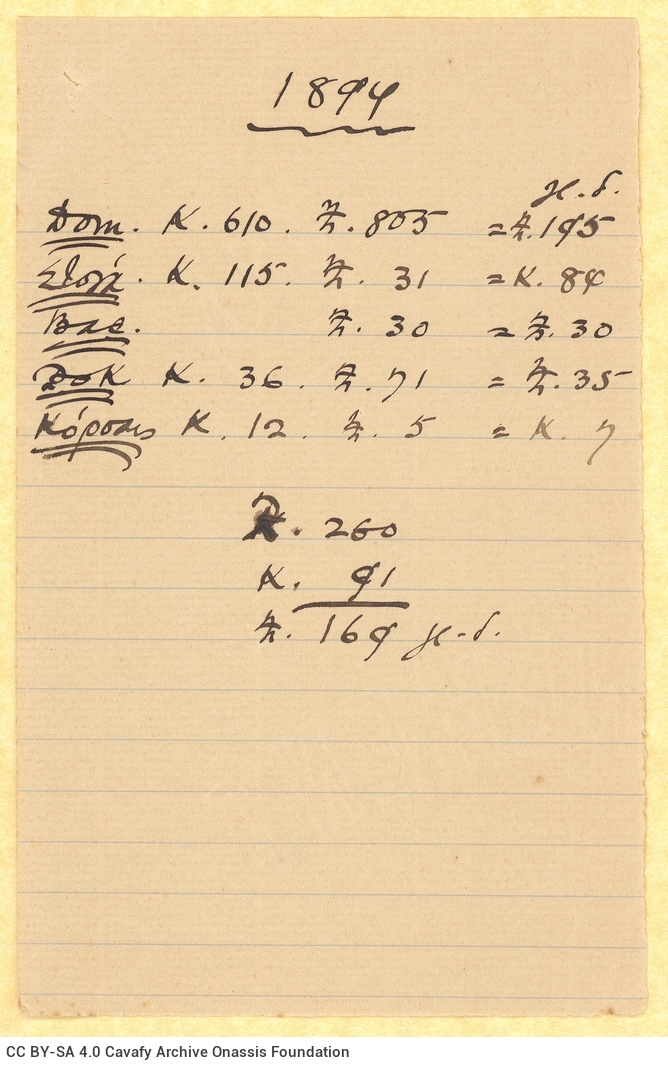 1894
Dom. Κ. 610. Ζ. 805 = Ζ. 195
Κ. 115. Ζ. 31 = Κ. 84
Bac. Ζ. 30 = Ζ. 30
Pok Κ. 36. Ζ. 71 = Ζ. 35
Κόρσαις Κ. 12. Ζ. 5 = Κ. 7
Ζ. 260
Κ. 91
Ζ. 169
CC BY-SA 4.0 Cavafy Archive Onassis Foundation